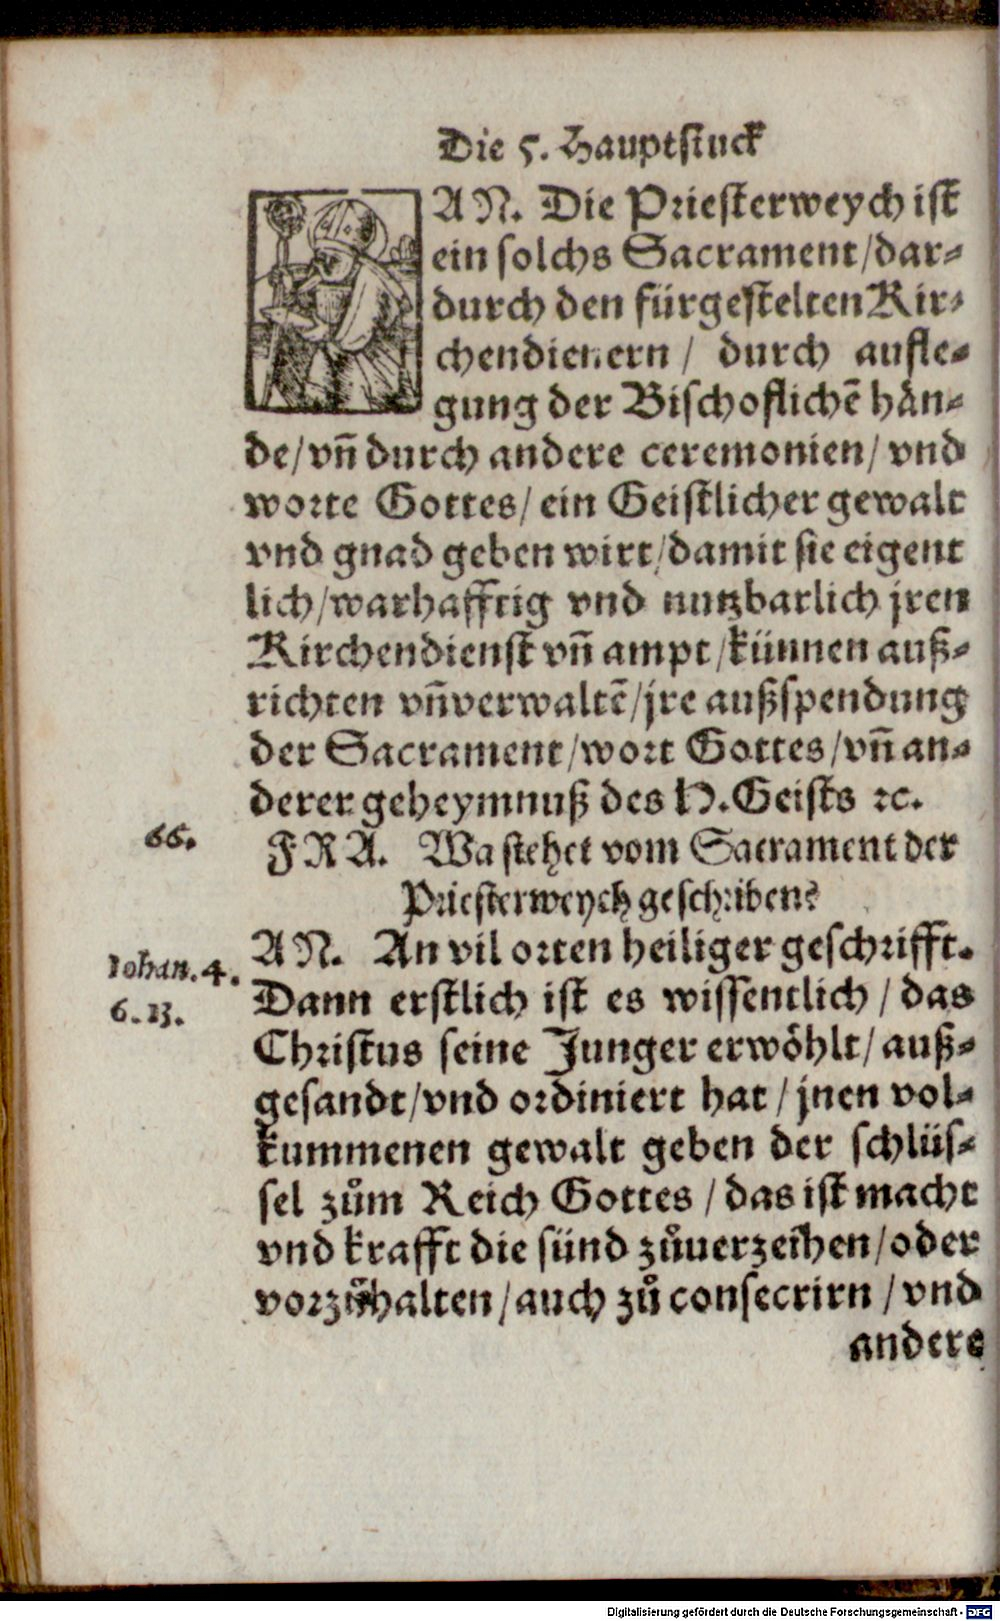 Die 5. Hauptstuck
AN. Die Priesterweych ist
ein solchs Sacrament/dar-
durch den fürgestelten Kir-
chendienern / durch aufle-
gung der Bischoflichē hän-
de/vn̄ durch andere ceremonien/ vnd
worte Gottes/ ein Geistlicher gewalt
vnd gnad geben wirt/damit sie eigent
lich/warhafftig vnd nutzbarlich jren
Kirchendienst vn̄ ampt/künnen auß-
richten vn̄ verwaltē/jre außspendung
der Sacrament/wort Gottes/vn̄ an-
derer geheymnuß des H. Geists ꝛc.
66.
FRA. Wa stehet vom Sacrament der
Priesterweych geschriben?
AN. An vil orten heiliger geschrifft.
Iohan. 4.
6. 13.
Dann erstlich ist es wissentlich / das
Christus seine Junger erwöhlt/ auß-
gesandt/vnd ordiniert hat / jnen vol-
kummenen gewalt geben der schlüs-
sel zům Reich Gottes / das ist macht
vnd krafft die sünd zůuerzeihen/oder
vorzůhalten/auch zů consecrirn / vnd
andere
Digitalisierung gefördert durch die Deutsche Forschungsgemeinschaft - DFG